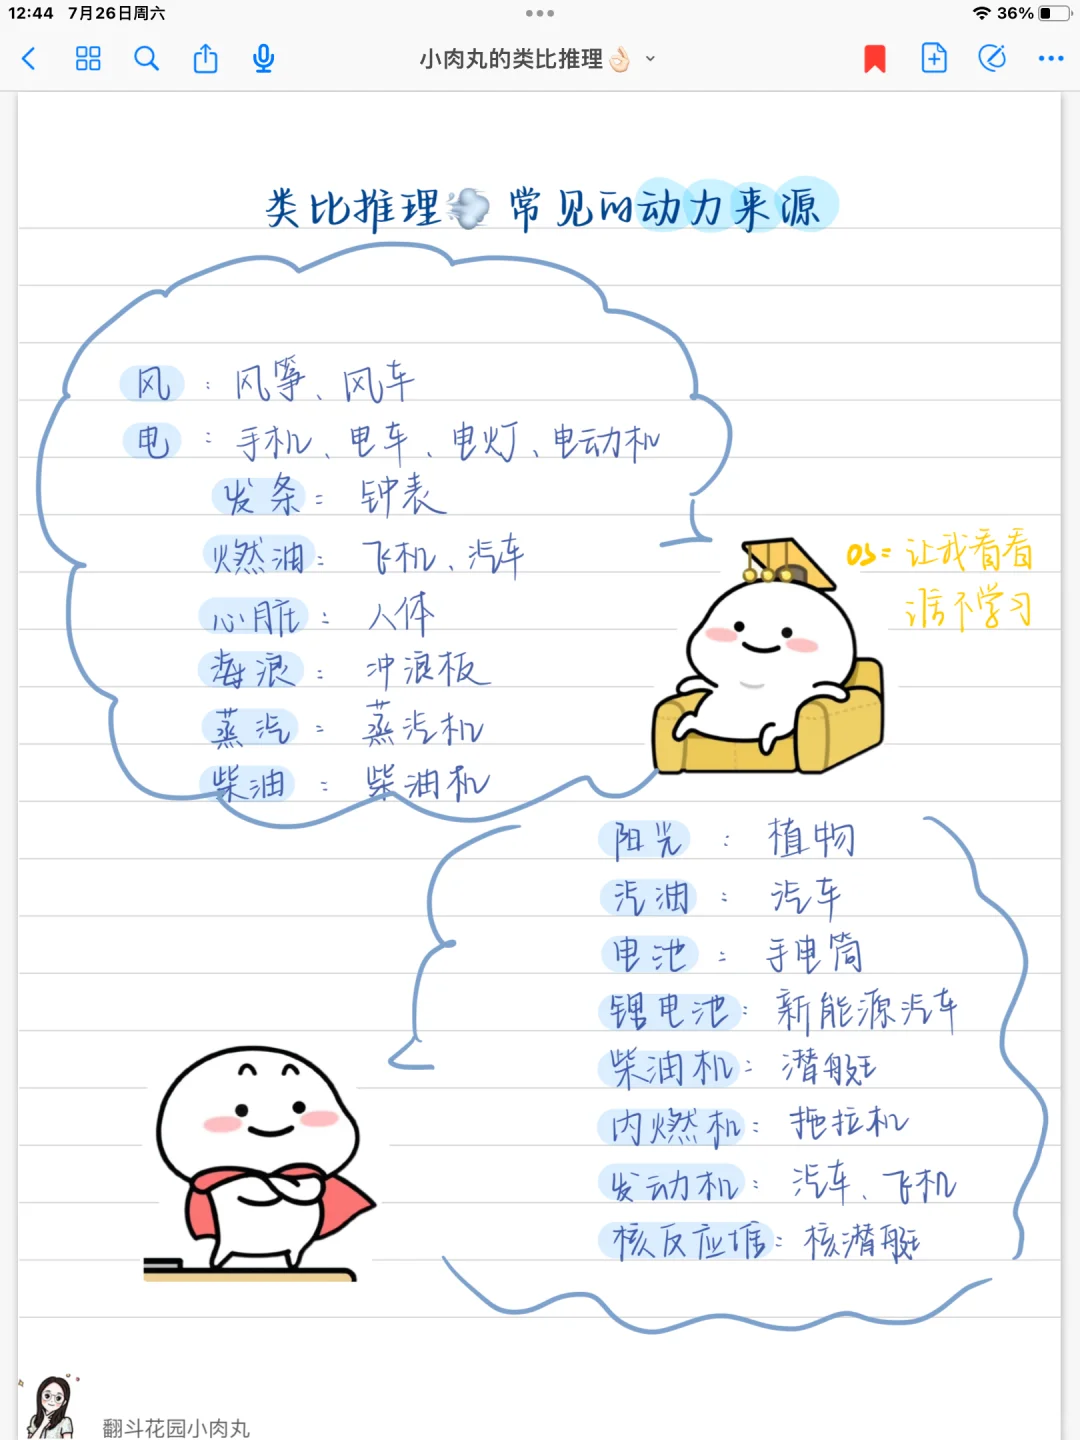 12:44 7月26日周六
36%
小肉丸的类比推理👌🏻
类比推理💨 常见的动力来源
风：风筝、风车
电：手机、电车、电灯、电动机
发条：钟表
燃油：飞机、汽车
心脏：人体
海浪：冲浪板
蒸汽：蒸汽机
柴油：柴油机
os=让我看看
谁不学习
阳光：植物
汽油：汽车
电池：手电筒
锂电池：新能源汽车
柴油机：潜艇
内燃机：拖拉机
发动机：汽车、飞机
核反应堆：核潜艇
翻斗花园小肉丸